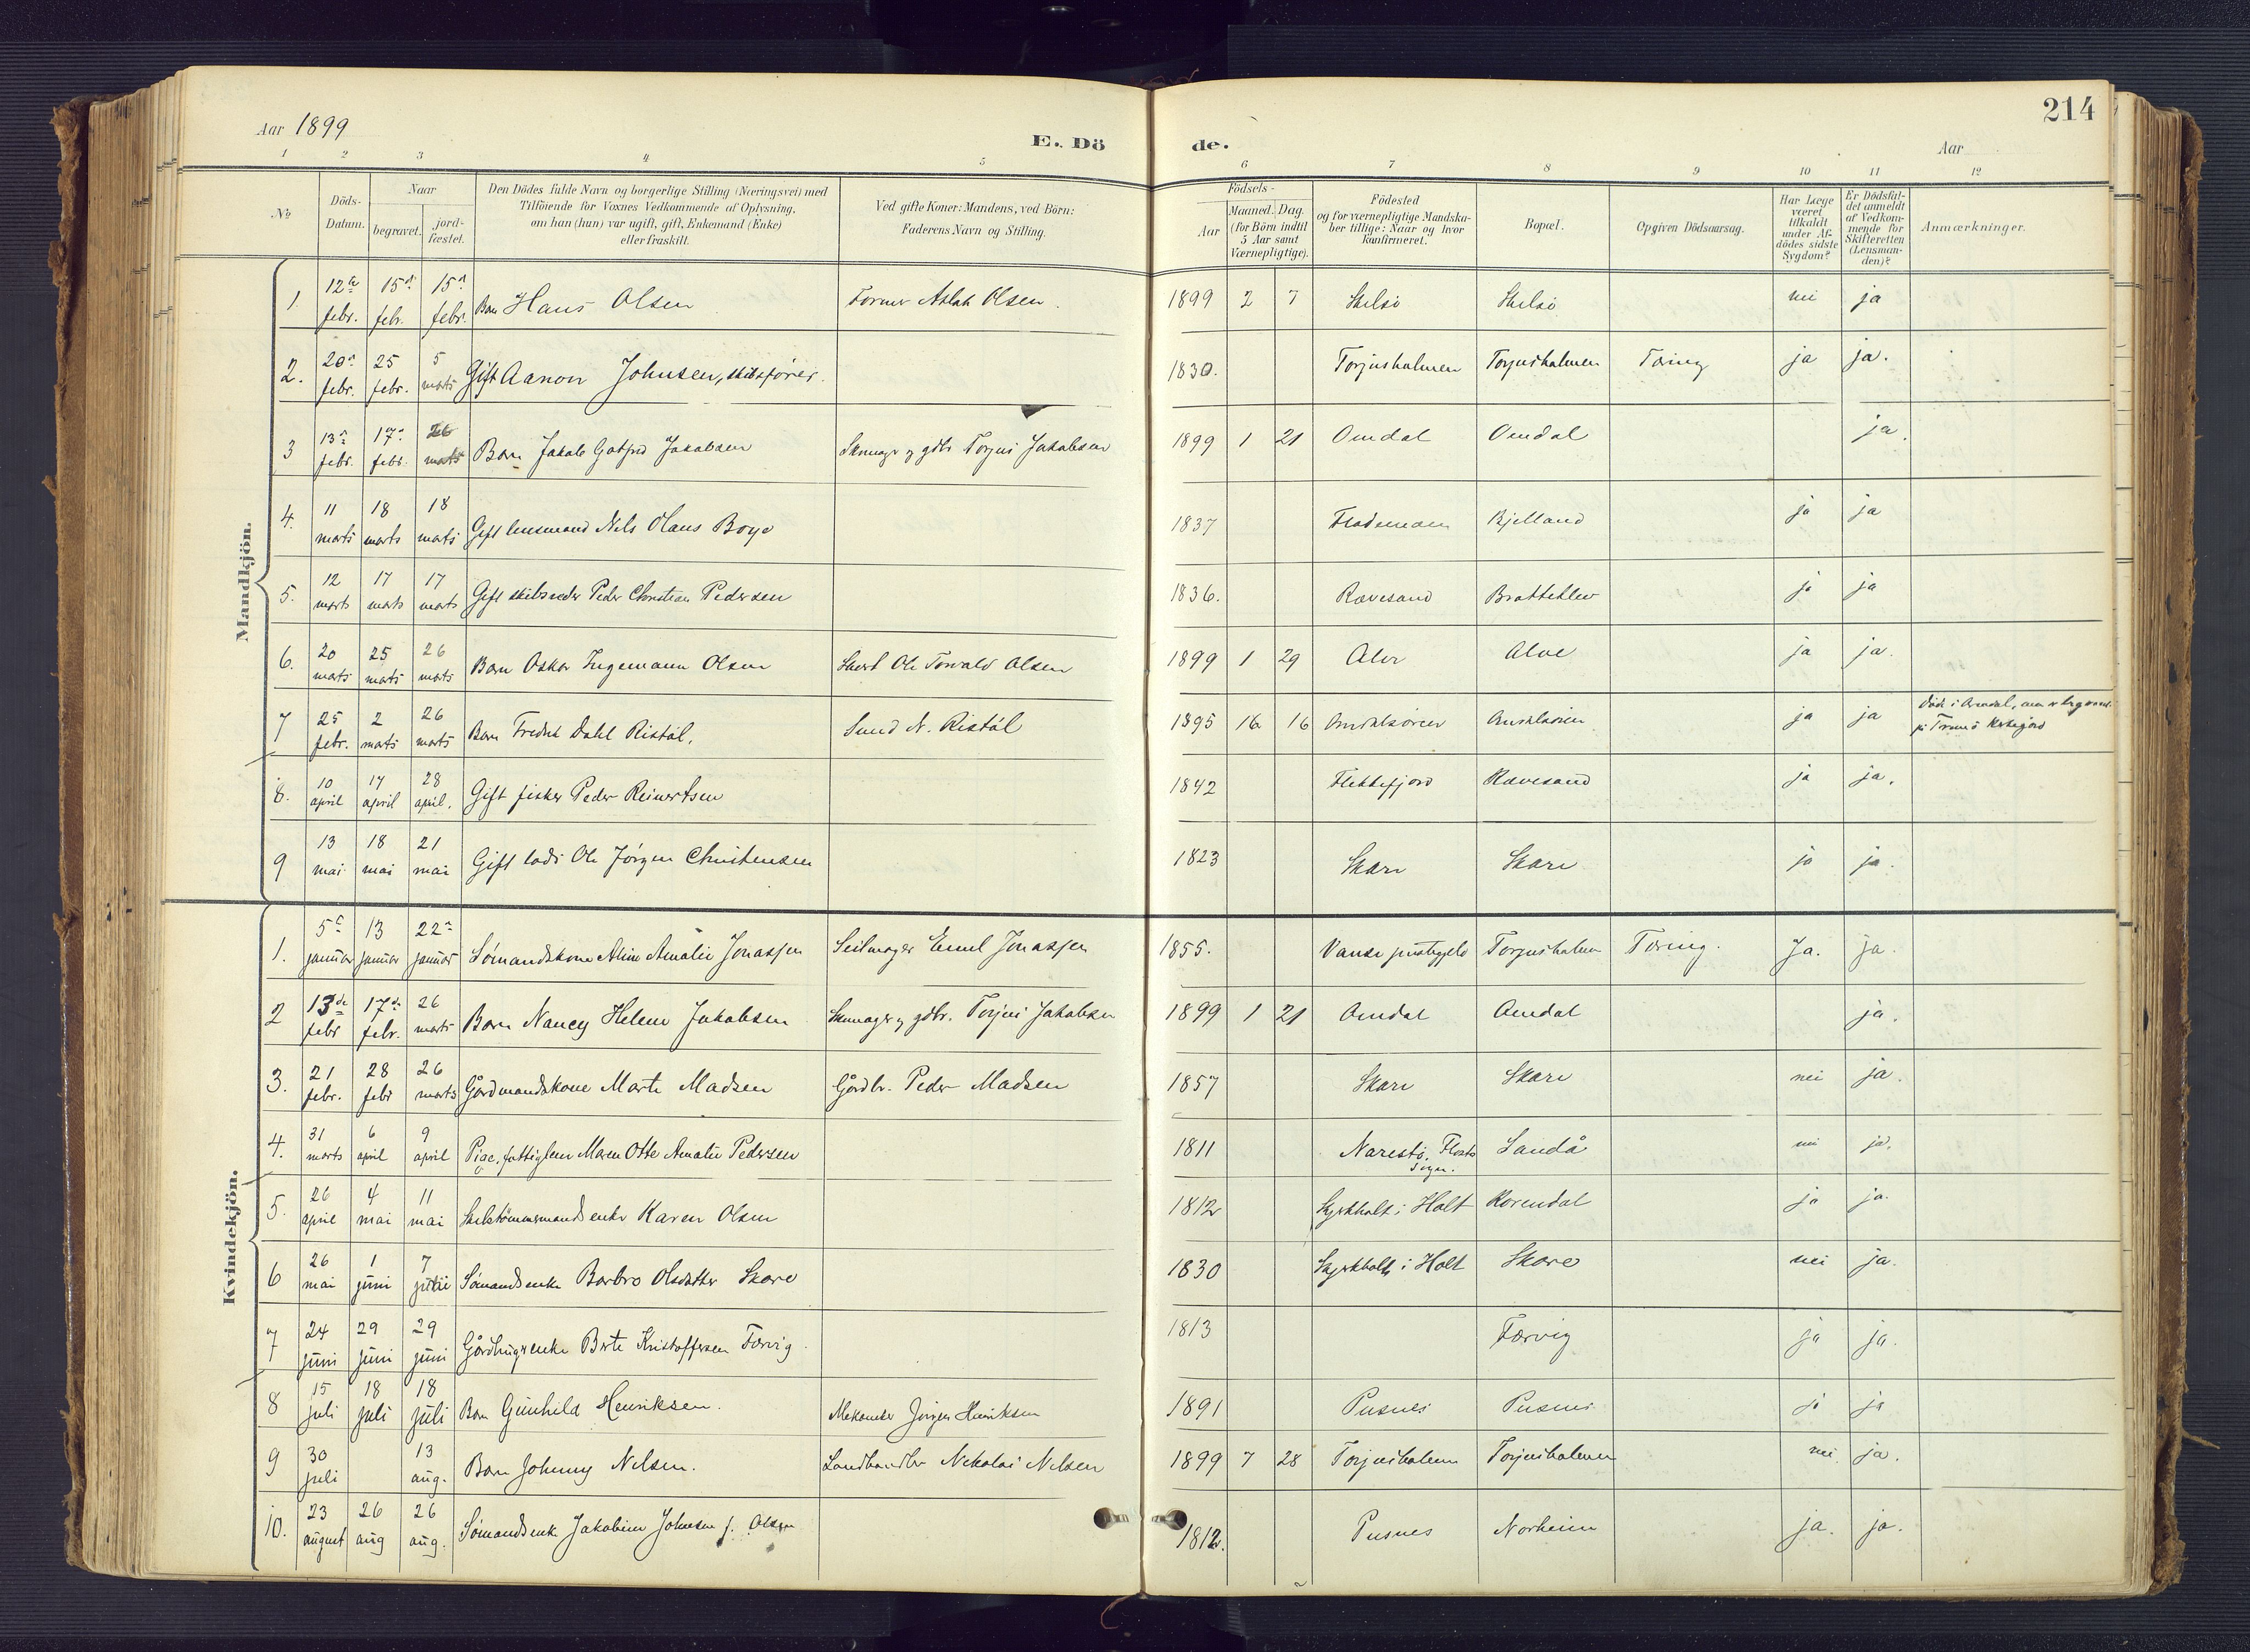 214
Aar 1899
E. Dö de.
Aar
1 2 3 4 5 6 7 8 9 10 11 12
№
Döds-
Datum.
Naar
begravet.
jord-
fæstet.
Den Dödes fulde Navn og borgerlige Stilling (Næringsvei) med
Tilföiende for Voxnes Vedkommende af Oplysning,
om han (hun) var ugift, gift, Enkemand (Enke)
eller fraskilt.
Ved gifte Koner: Mandens, ved Börn:
Faderens Navn og Stilling.
Födsels-
Aar
Maaned. Dag.
(for Börn indtil
5 Aar samt
Værnepligtige).
Födested
og for værnepligtige Mandska-
ber tillige: Naar og hvor
konfirmeret.
Bopæl.
Opgiven Dödsaarsag.
Har Læge
været
tilkaldt
under Af-
dödes sidste
Sygdom?
Er Dödsfal-
det anmeldt
af Vedkom-
mende for
Skifteretten
(Lensman-
den)?
Anmærkninger.
Mandkjön.
1. 12te febr. 15de feb. 15de febr. Barn Hans Olsen Former Aslak Olsen 1899 2 7 Skilsö Skilsö nei ja
2. 20de febr. 25 febr. 5 marts Gift Aanon Johnsen, skibsfører. 1830. Torjusholmen Torjusholmen Tæring ja ja.
3 13de febr. 17de febr. 26 marts Barn Jakob Gotfred Jakobsen Skomager og gdbr. Torjus Jakobsen 1899 1 21 Omdal Omdal ja.
4. 11 marts 18 marts 18 marts Gift lensmand Nels Olaus Boye 1837 Kjelland ja ja
5. 12 marts 17 marts 17 marts Gift skibsreder Peder Christian Pedersen 1836. Rævesand Bratteklev ja ja
6. 20 marts 25 marts 26 marts Barn Oskar Ingemann Olsen Ole Torvald Olsen 1899 1 29 Alve Alve ja ja.
7 25 febr. 2 marts 26 marts Barn Fredrik Dahl Ristöl. N. Ristöl 1895 16 16 ja ja Död i Arendal, men begravet
på Tromö Kirkegård
8. 10 april 17 april 28 april. Gift fisker Peder Reinertsen 1842 Flekkefjord Rævesand ja ja.
9 13 mai 18 mai 21 mai Gift lods Ole Jørgen Christensen 1823 Skare Skare ja ja.
Kvindekjön.
1. 5te januar 13 januar 22de januar Sømandskone Aline Amalie Jonassen Seilmager Emil Jonassen 1855. Vanse præstegjeld Torjusholm Tæring. Ja. ja.
2 13de febr 17de febr. 26 marts Barn Nancy Helene Jakobsen Skomager og gdbr. Torjus Jakobsen 1899 1 21 Omdal Omdal ja.
3. 21 febr. 28 febr 26 marts Gårdmandskone Marte Madsen Gårdbr. Peder Madsen 1857 Skare Skare nei ja.
4. 31 marts 6 april 9 april Pige, fattiglem Maren Otte Amalie Pedersen 1811 Narestö, Flosta
Sogn. Sandå nei ja.
5. 26 april 4 mai 11 mai Skibstömmermandsenke Karen Olsen 1812 Skjerkholt i Holt Rorendal ja ja.
6 26 mai 1 juni 7 julie Sömandsenke Barbro Olsdatter Skare 1830 Skjerkholt i Holt Skare nei ja.
7 24 juni 29 juni 29 juni Gårdbrugerenke Berte Kristoffersen Færvig. 1813 Færvig ja ja.
8 15 juli 18 juli 18 juli Barn Gunhild Henriksen. Mekaniker Jørgen Henriksen 1891 Pusnes Pusnes ja ja
9 30 juli 13 aug. Barn Johnny Nelsen. Landhandler Nikolai Nelsen 1899 7 28 Torjusholmen Torjusholmen nei ja.
10. 23 august 26 aug 26 aug. Sömandsenke Jakobine Johnsen f. Olsen 1812. Pusnes Norheim ja. ja.